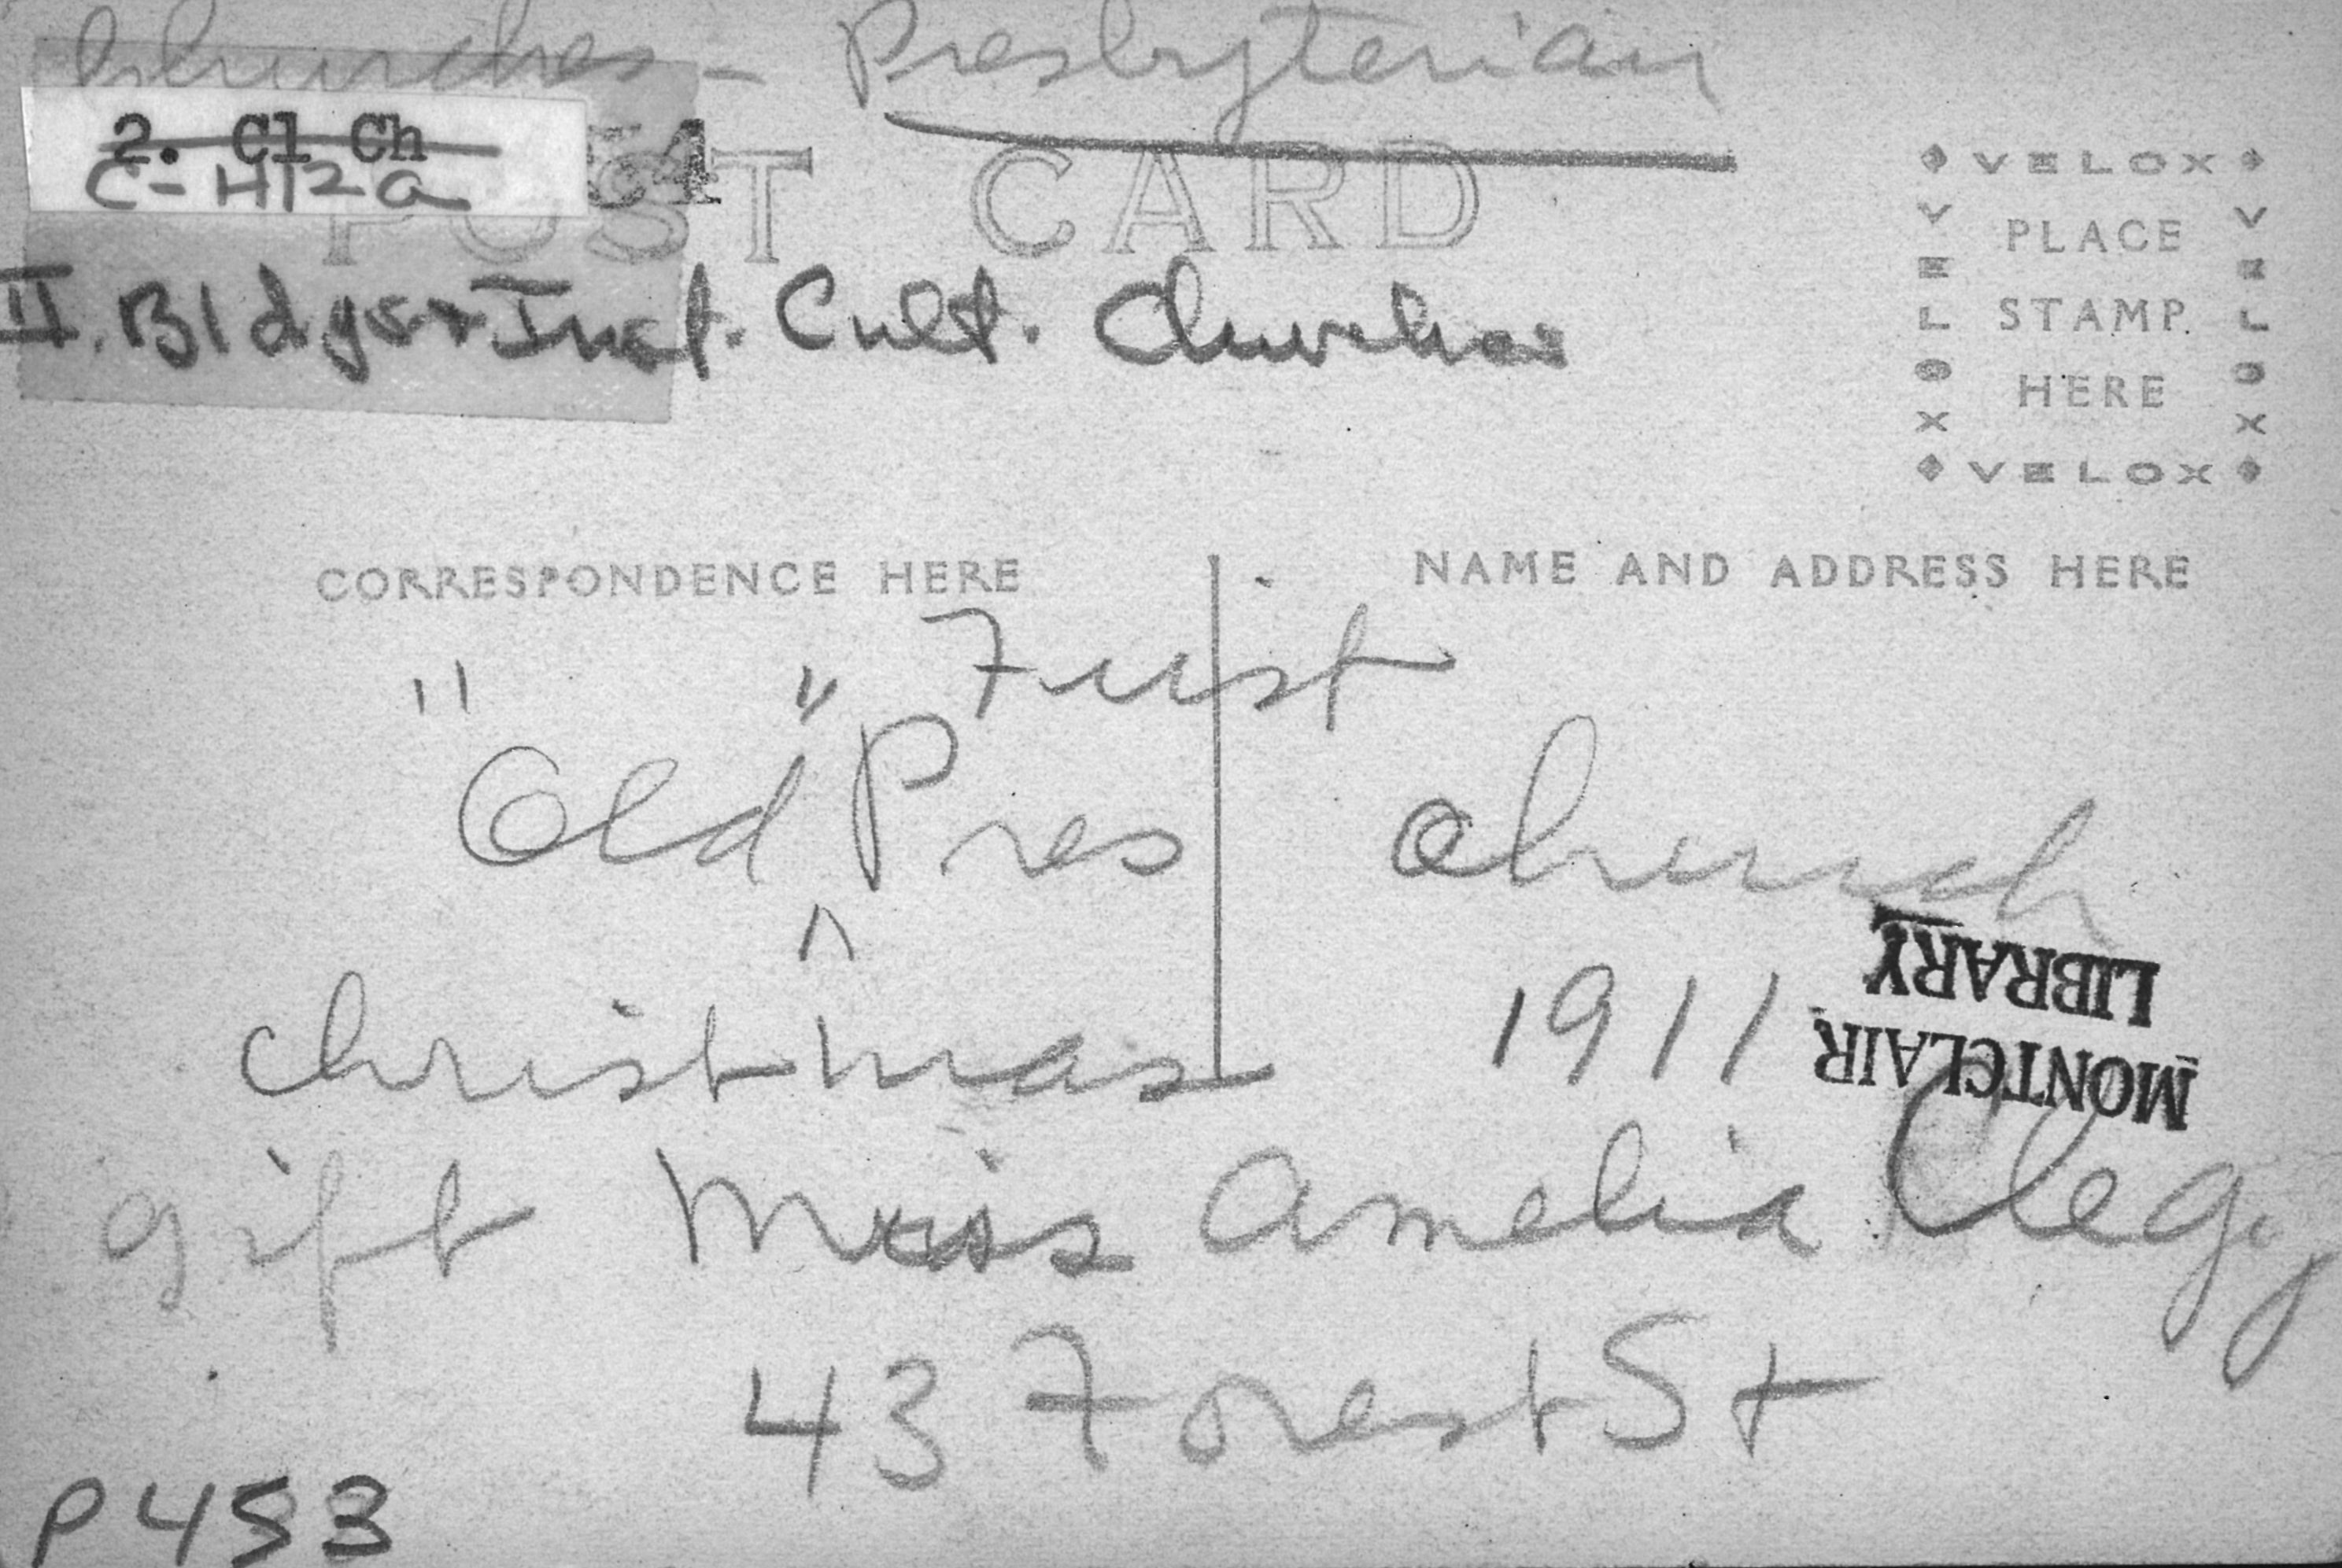 Churches - Presbyterian
2. Cl Ch
C-H12a
c4
POST CARD
II. Bldgs + Inst. Cult. Churches
VELOX
VELOX
VELOX
VELOX
PLACE
STAMP
HERE
CORRESPONDENCE HERE
NAME AND ADDRESS HERE
First
"Old" Pres church
^
Christmas 1911
gift Miss Amelia Clegg
43 Forest St
MONTCLAIR
LIBRARY
P453